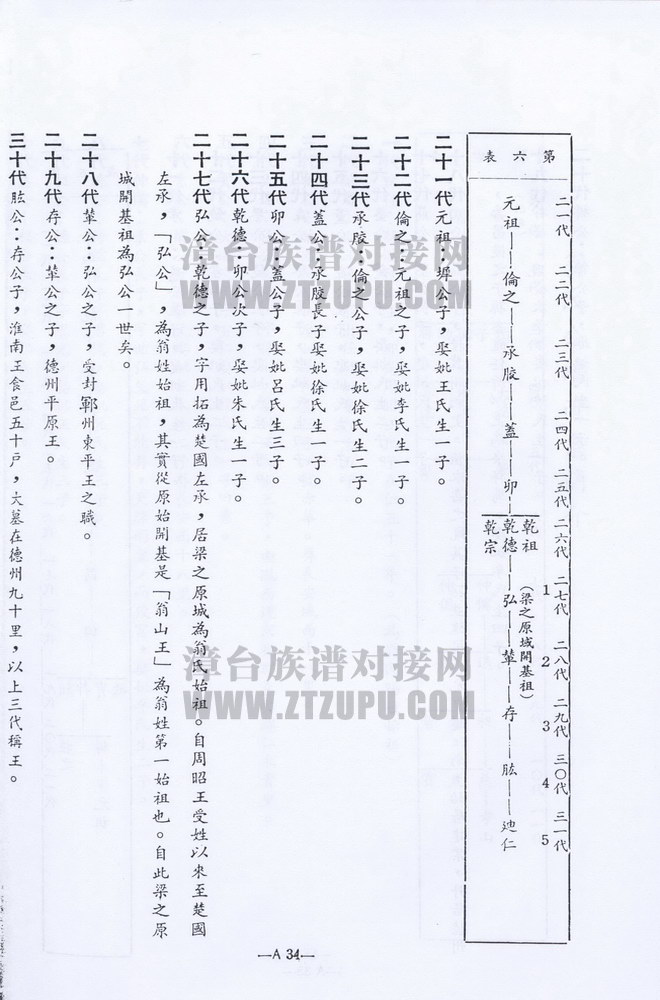 第六表
二一代 二二代 二三代 二四代 二五代 二六代 二七代 二八代 二九代 三〇代 三一代
1 2 3 4 5
乾祖 （梁之原城開基祖）
元祖——倫之——承胶——蓋——卯——乾德——弘——輦——存——胘——廸仁
乾宗
二十一代元祖：墀公子，娶妣王氏生一子。
二十二代倫之：元祖之子，娶妣李氏生一子。
二十三代承胶：倫之公子，娶妣徐氏生二子。
二十四代蓋公：承胶長子娶妣徐氏生一子。
二十五代卯公：蓋公子，娶妣呂氏生三子。
二十六代乾德：卯公次子，娶妣朱氏生一子。
二十七代弘公：乾德之子，字用拓為楚國左承，居梁之原城為翁氏始祖。自周昭王受姓以來至楚國
左承，「弘公」，為翁姓始祖，其實從原始開基是「翁山王」為翁姓第一始祖也。自此梁之原
城開基祖為弘公一世矣。
二十八代輦公：弘公之子，受封鄆州東平王之職。
二十九代存公：輦公之子，德州平原王。
三十代胘公：存公子，淮南王食邑五十戶，大墓在德州九十里，以上三代稱王。
—A 34—
漳台族谱对接网
WWW.ZTZUPU.COM
漳台族谱对接网
WWW.ZTZUPU.COM